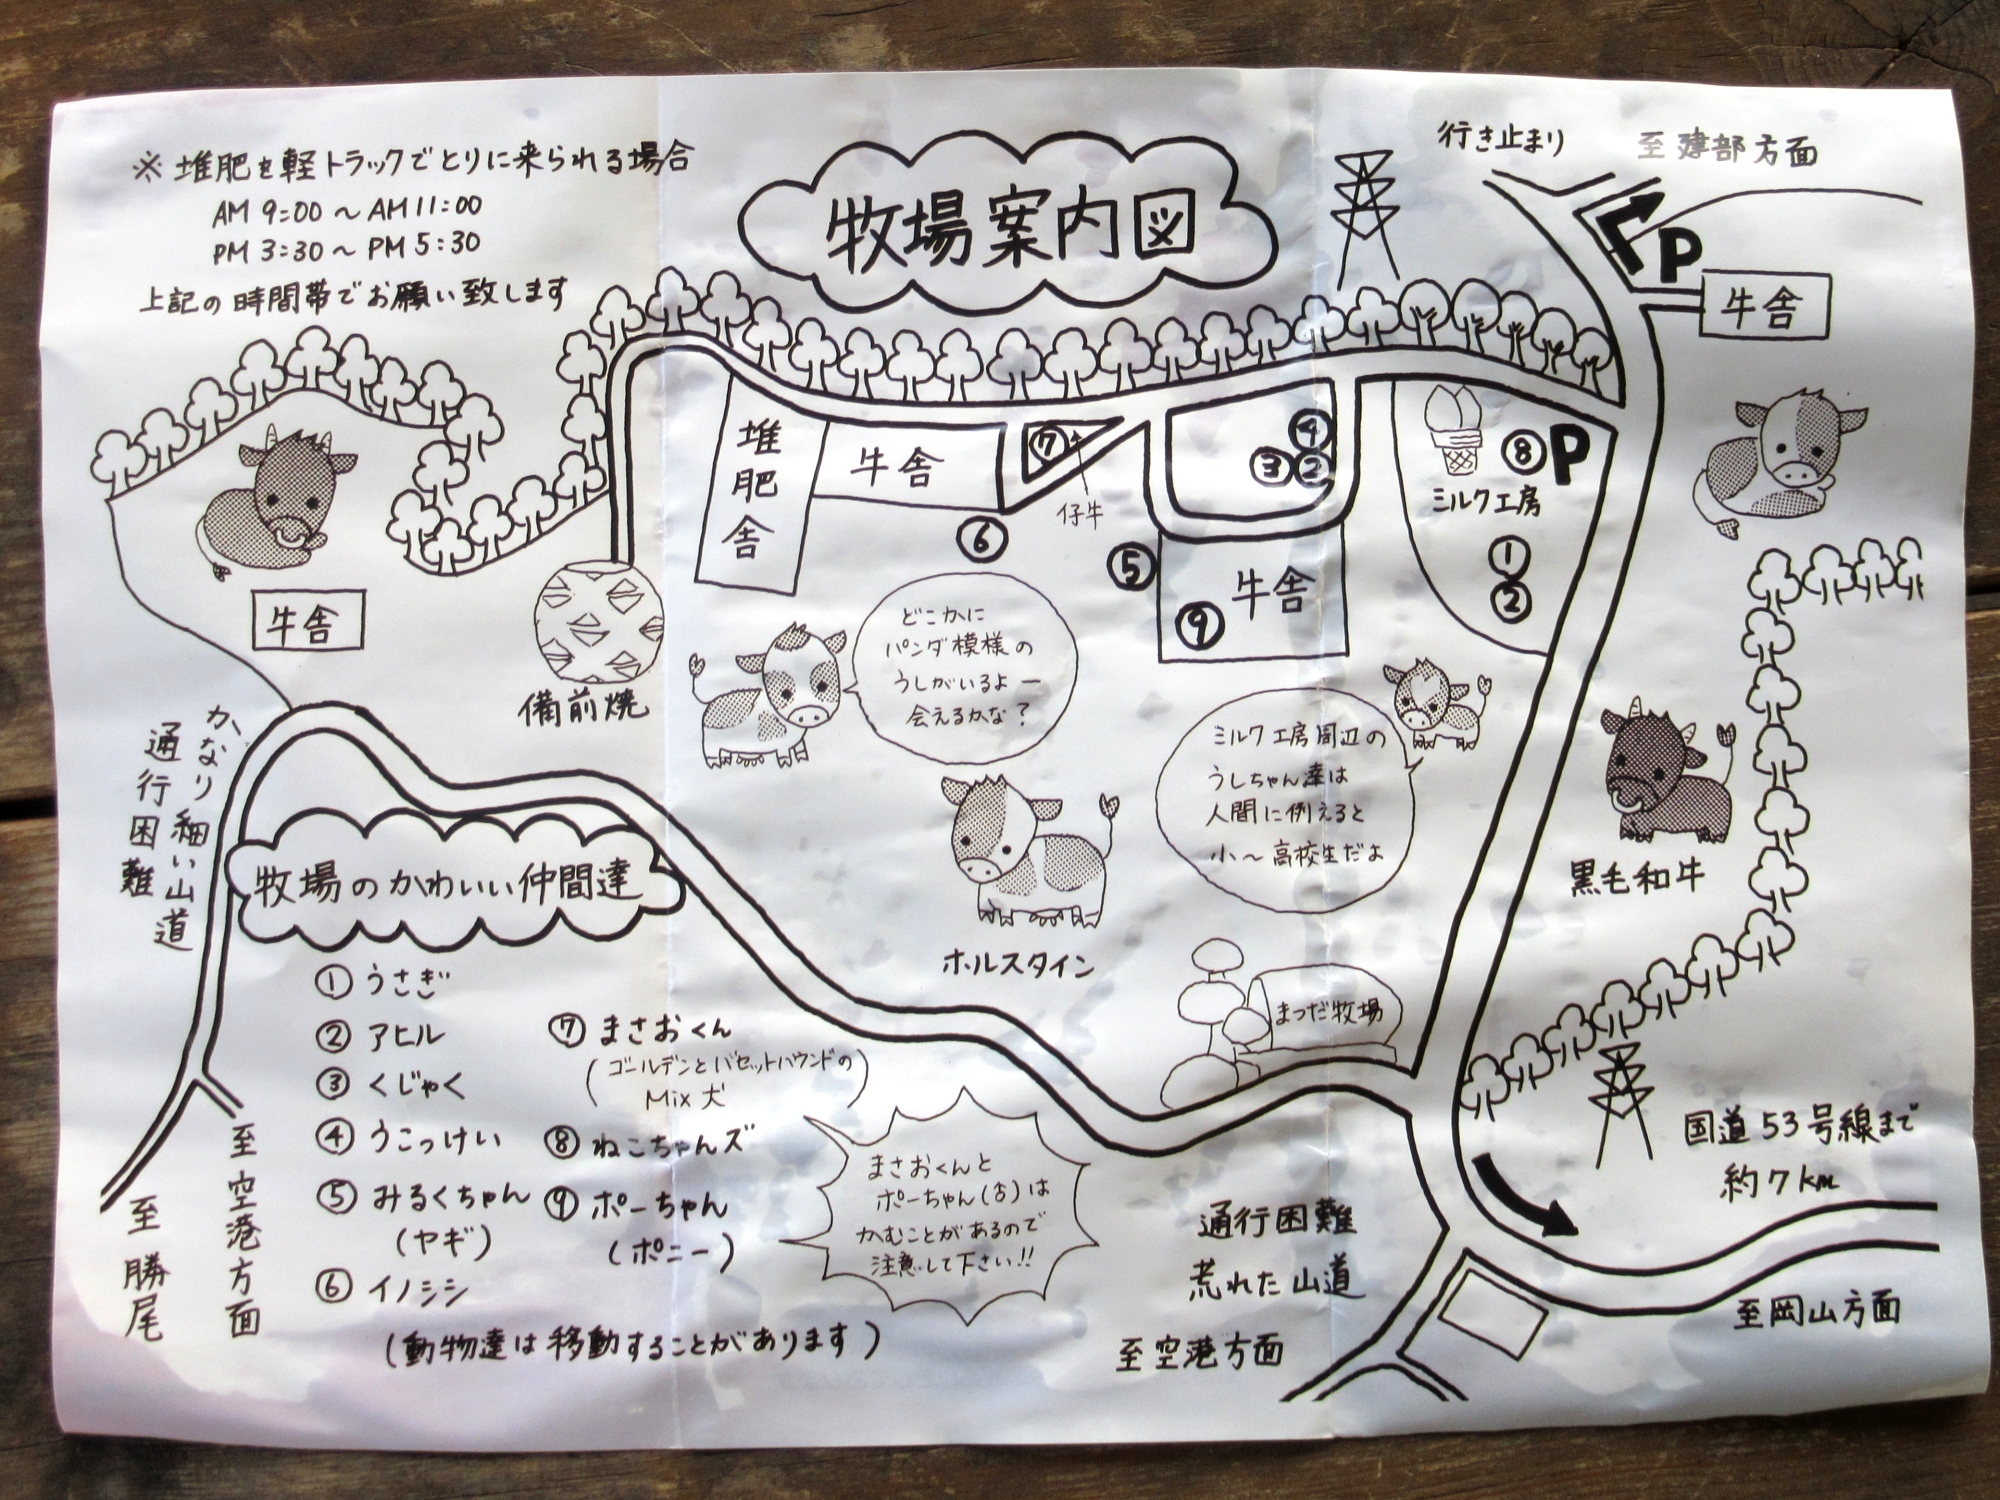 ※堆肥を軽トラックでとりに来られる場合
AM 9:00 〜 AM 11:00
PM 3:30 〜 PM 5:30
上記の時間帯でお願い致します
牧場案内図
行き止まり
至建部方面
P
牛舎
堆肥舎
牛舎
⑦
仔牛
⑥
④
③②
⑤
⑨
牛舎
⑧P
ミルク工房
①
②
牛舎
備前焼
どこかに
パンダ模様の
うしがいるよー
会えるかな?
ミルク工房周辺の
うしちゃん達は
人間に例えると
小〜高校生だよ
黒毛和牛
ホルスタイン
まつだ牧場
かなり細い山道
通行困難
牧場のかわいい仲間達
①うさぎ
②アヒル
③くじゃく
④うこっけい
⑤みるくちゃん
(ヤギ)
⑥イノシシ
⑦まさおくん
(ゴールデンとバセットハウンドの
Mix犬)
⑧ねこちゃんズ
⑨ポーちゃん
(ポニー)
(動物達は移動することがあります)
まさおくんと
ポーちゃん(♂)は
かむことがあるので
注意して下さい!!
至勝尾
至空港方面
通行困難
荒れた山道
至空港方面
国道53号線まで
約7km
至岡山方面